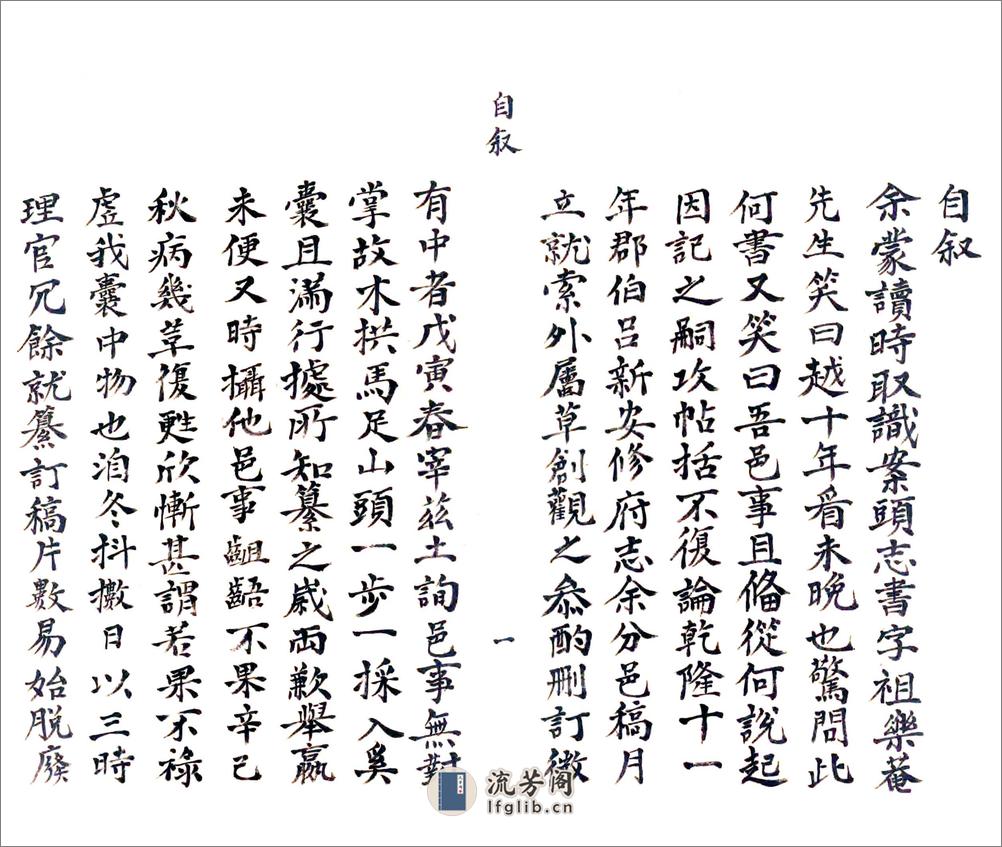 自叙
余蒙讀時取識案頭志書字祖樂菴
先生笑曰越十年看未晚也驚問此
何書又笑曰吾邑事且俻從何說起
因記之嗣攻帖括不復論乾隆十一
年郡伯呂新安修府志余分邑稿月
立就索外屬草創觀之叅酌刪訂微
自叙
一
有中者戊寅春宰茲土詢邑事無對
掌故木拱馬足山頭一步一採入奚
囊且滿行據所知纂之歲兩歉舉羸
未便又時攝他邑事齟齬不果辛已
秋病幾草復甦欣慚甚謂若果不祿
虛我囊中物也洎冬抖擻日以三時
理官冗餘就纂訂稿片數易始脫廢
流芳阁
lfglib.cn